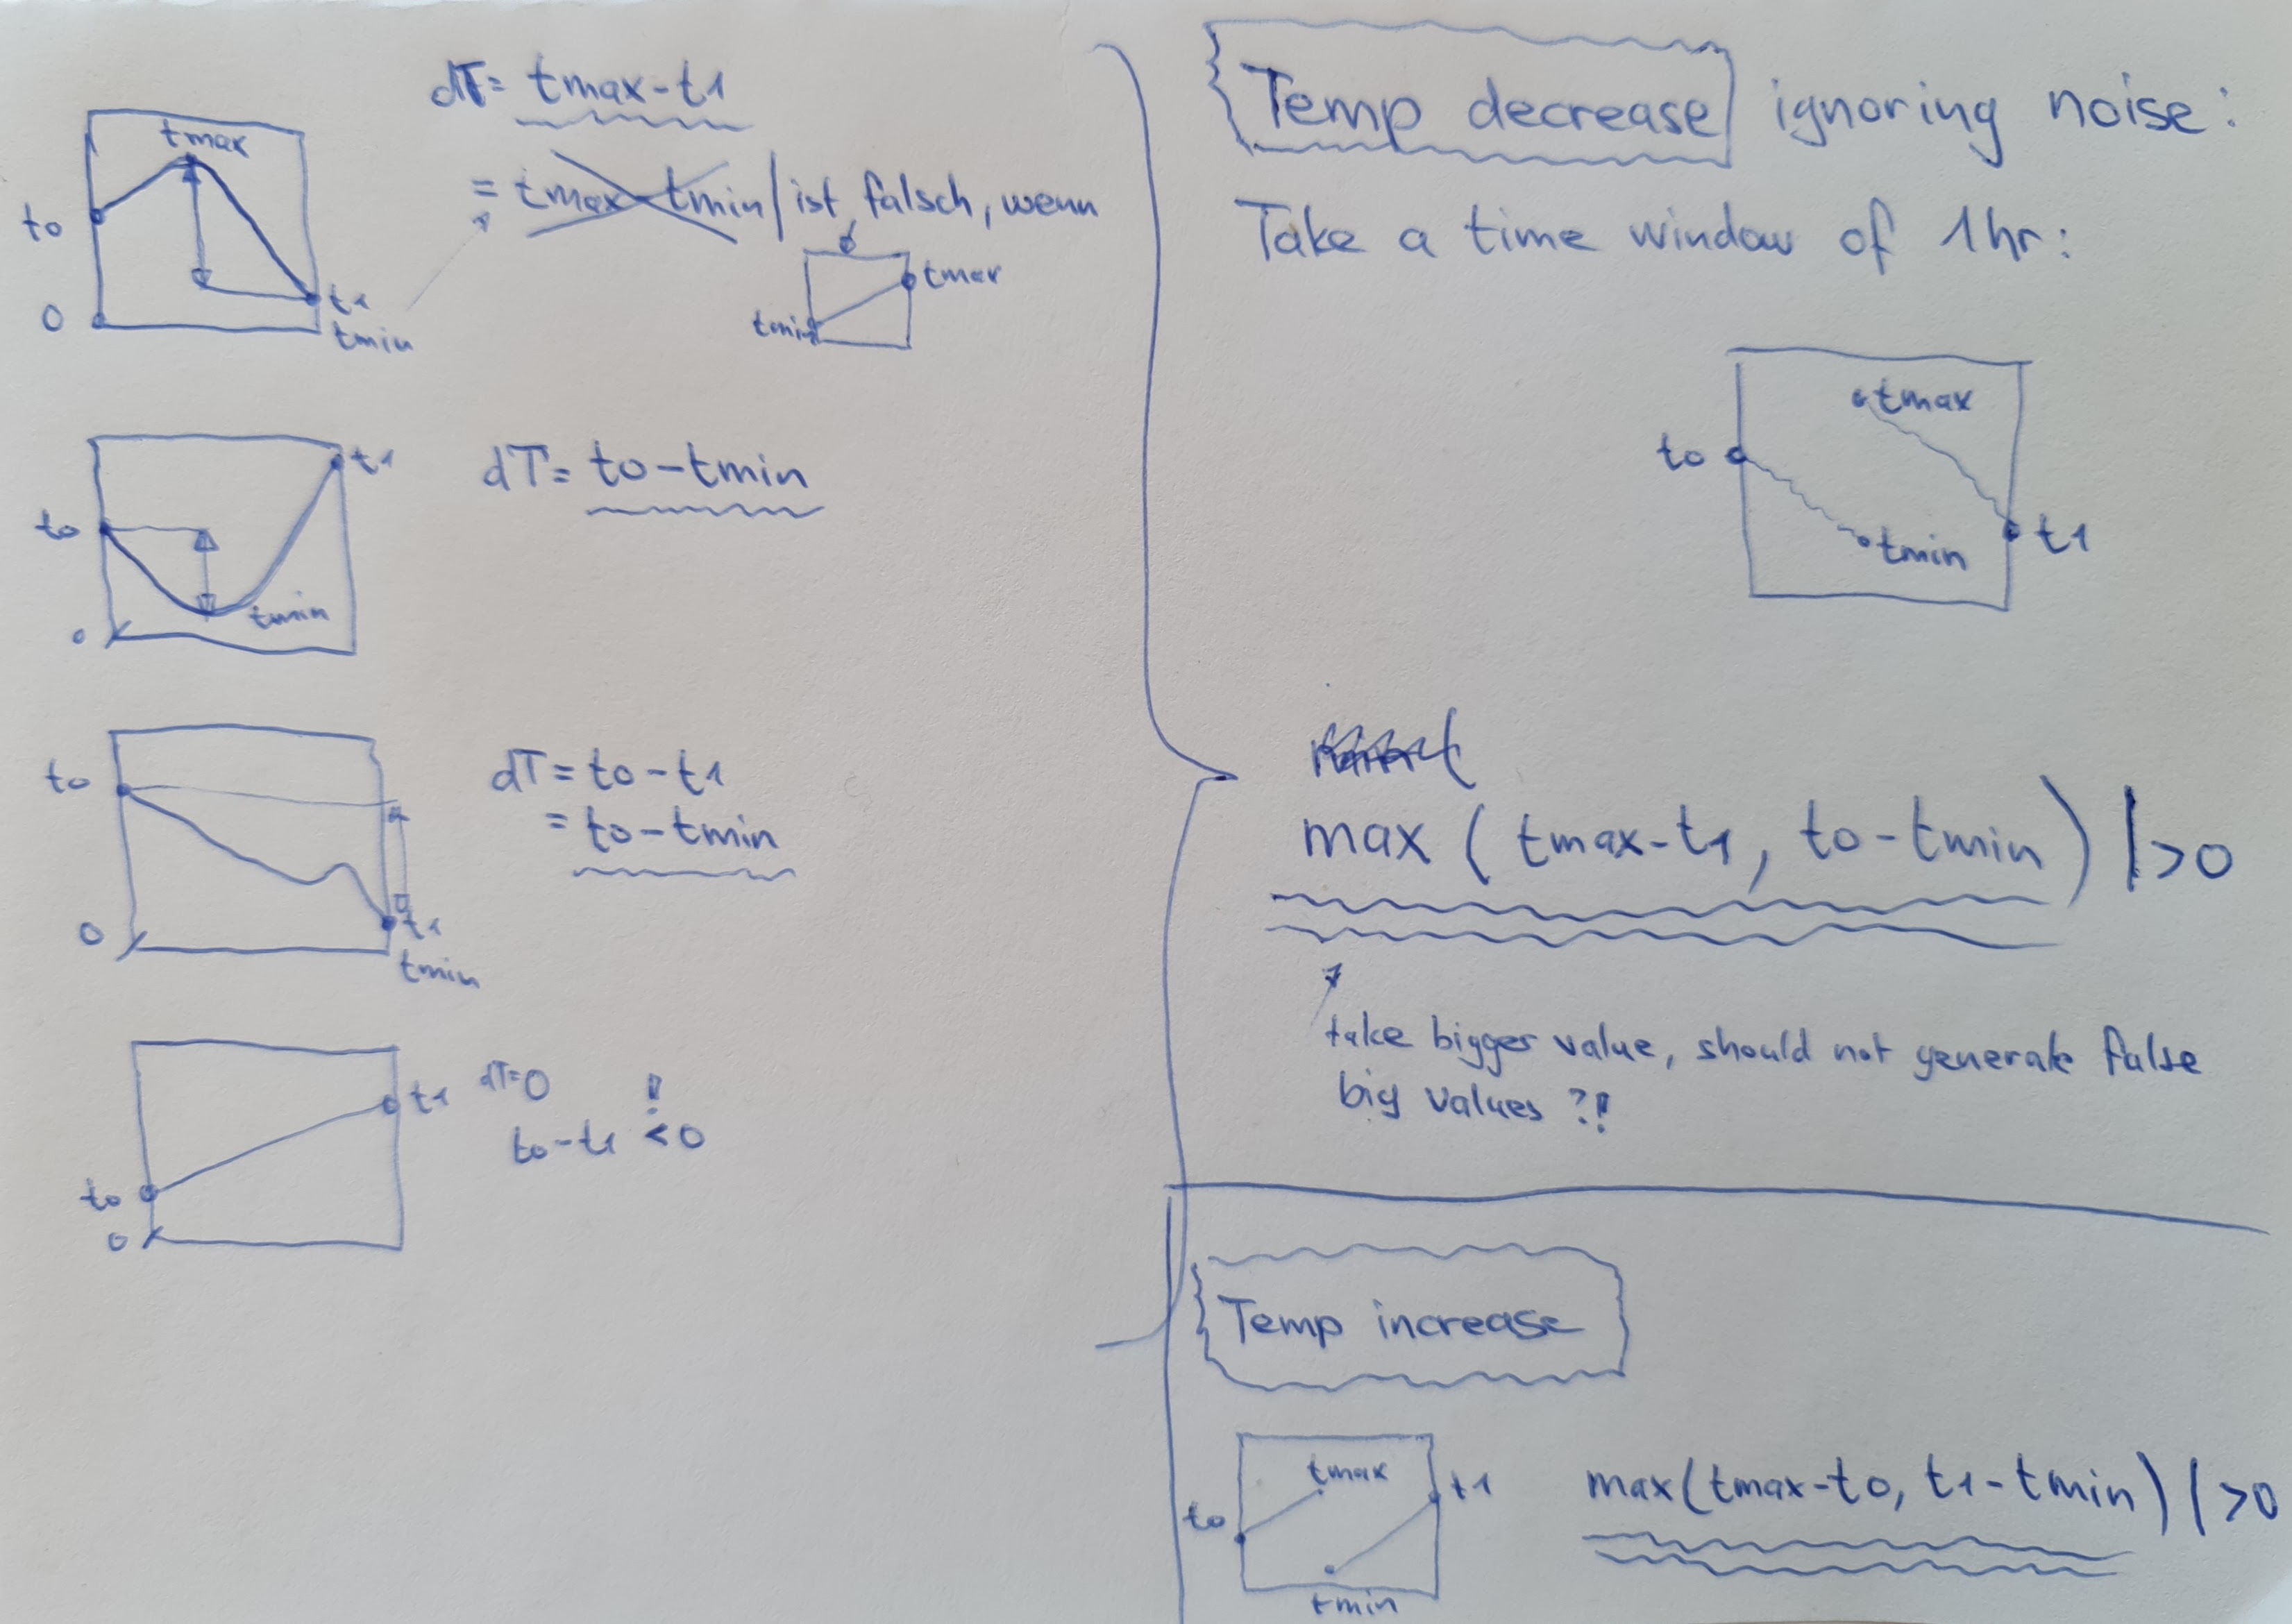 dT= tmax-t1
= tmax-tmin | ist falsch, wenn
tmax
t0
0
t1
tmin
tmax
tmin
t1
t0
tmin
0
dT= t0-tmin
t0
0
t1
tmin
dT= t0-t1
= t0-tmin
t1
t0
0
dT=0
!
t0-t1 <0
Temp decrease ignoring noise:
Take a time window of 1hr:
tmax
t0
t1
tmin
max (tmax-t1, t0-tmin) |>0
take bigger value, should not generate false
big values ?!
Temp increase
tmax
t1
t0
tmin
max(tmax-t0, t1-tmin) |>0